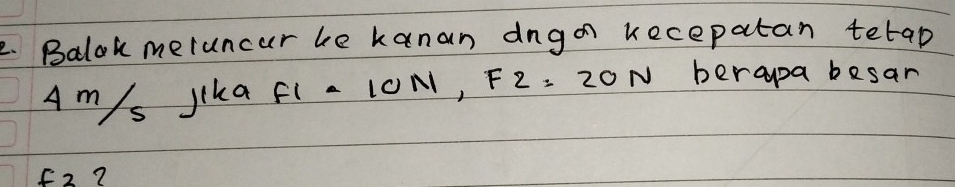 2. Balok meluncur ke kanan dngan kecepatan tetap
4 m/s jika F1 = 10 N, F2 = 20 N berapa besar
F3?